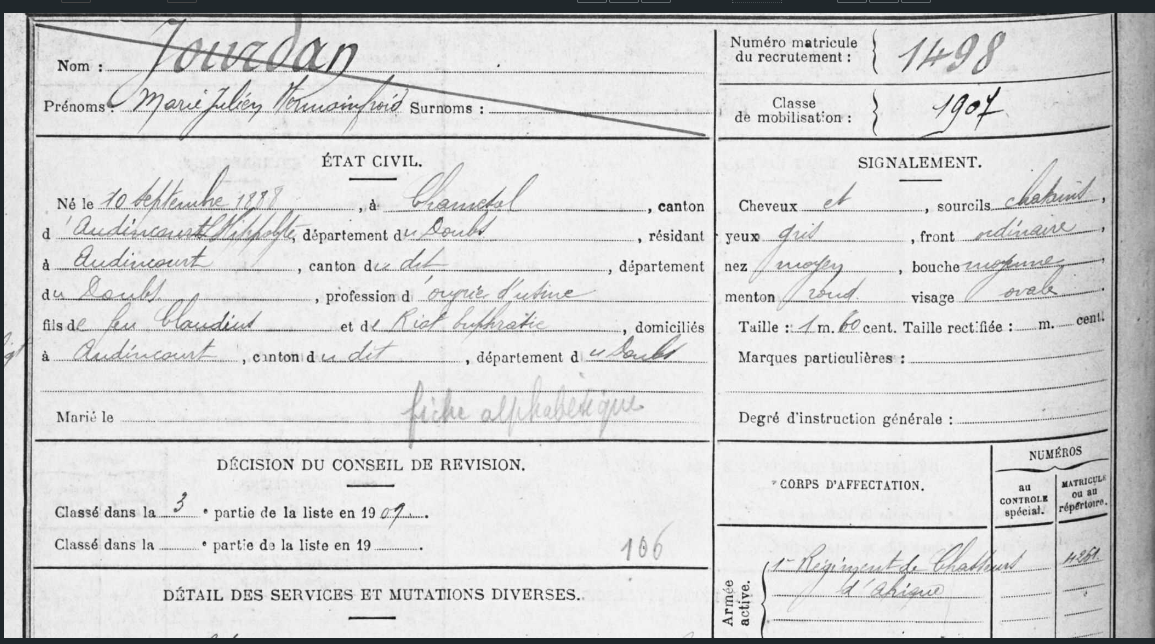 Nom : Jourdan
Prénoms Marie Julien Vermainfroid Surnoms :
Numéro matricule
du recrutement : 1498
Classe
de mobilisation : 1907
ÉTAT CIVIL.
Né le 10 septembre , à , canton
d Audincourt Hippolyte, département du Doubs , résidant
à Audincourt , canton du dit , département
du Doubs , profession d' d'usine
fils de feu Claudius et de Riat , domiciliés
à Audincourt , canton du dit , département du Doubs
Marié le fiche alphabétique
SIGNALEMENT.
Cheveux et , sourcils chatains ,
yeux gris , front ordinaire ,
nez moyen , bouche moyenne,
menton rond visage ovale
Taille : 1 m. 60 cent. Taille rectifiée : m. cent.
Marques particulières :
Degré d'instruction générale :
DÉCISION DU CONSEIL DE REVISION.
Classé dans la 3 e partie de la liste en 1909.
Classé dans la e partie de la liste en 19
106
DÉTAIL DES SERVICES ET MUTATIONS DIVERSES.
CORPS D'AFFECTATION.
NUMÉROS
au
CONTROLE
spécial.
MATRICULE
ou au
répertoire.
Armée
active.
1er Régiment de Chasseurs
d'Afrique